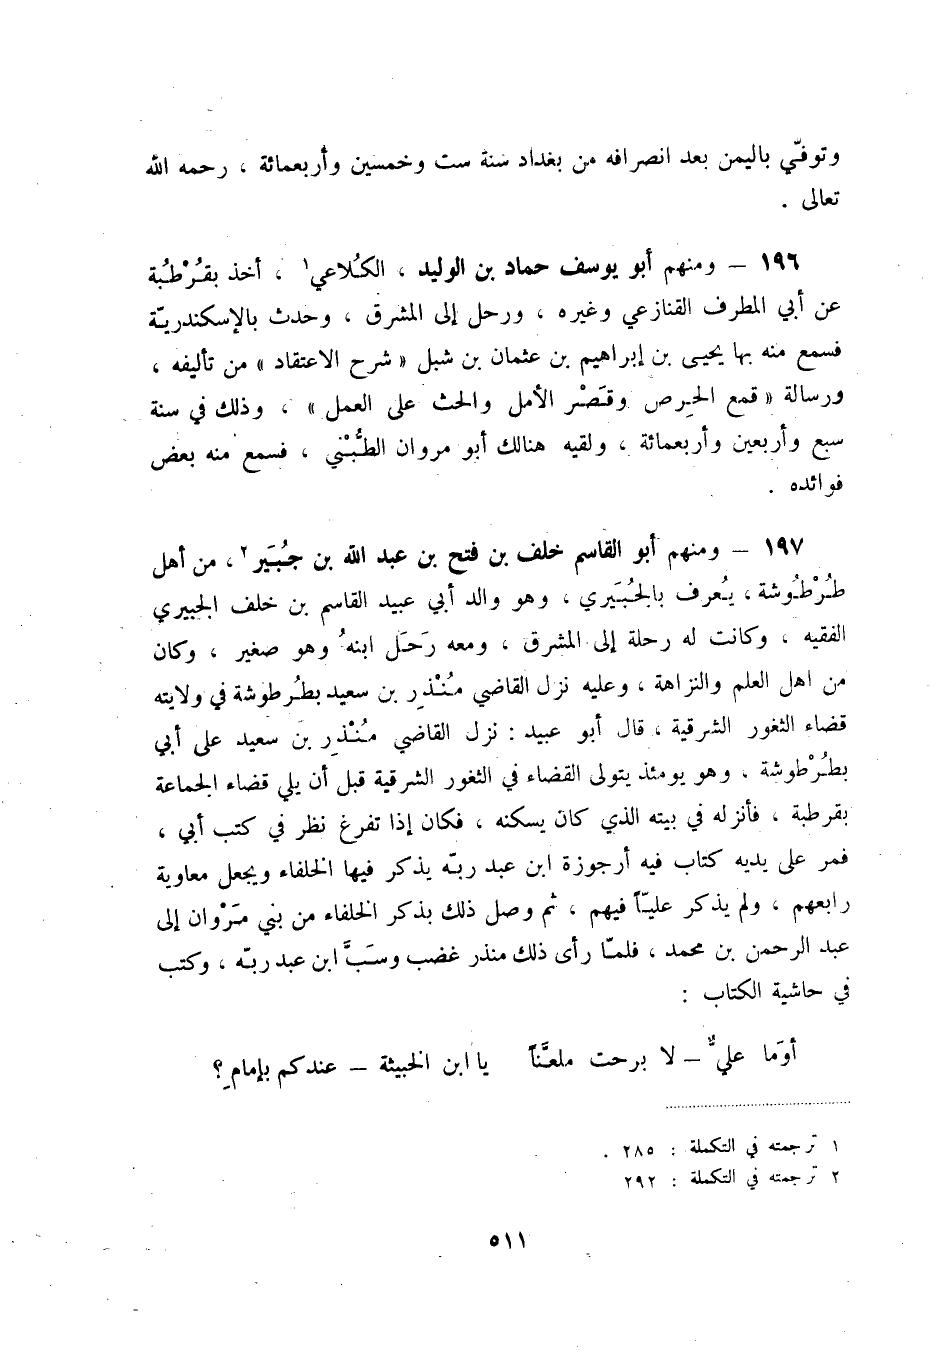 وتوفّي باليمن بعد انصرافه من بغداد سنة ست وخمسين وأربعمائة ، رحمه الله
تعالى .
١٩٦ – ومنهم أبو يوسف حماد بن الوليد ، الكُلاعي١ ، أخذ بقُرْطُبة
عن أبي المطرف القنازعي وغيره ، ورحل إلى المشرق ، وحدث بالإسكندريّة
فسمع منه بها يحيى بن إبراهيم بن عثمان بن شبل « شرح الاعتقاد » من تأليفه ،
ورسالة « قمع الحِرص وقَصْر الأمل والحث على العمل » ، وذلك في سنة
سبع وأربعين وأربعمائة ، ولقيه هنالك أبو مروان الطُّبْني ، فسمع منه بعض
فوائده .
١٩٧ – ومنهم أبو القاسم خلف بن فتح بن عبد الله بن جُبَير٢ ، من أهل
طُرْطُوشة ، يُعرف بالجُبَيري ، وهو والد أبي عبيد القاسم بن خلف الجبيري
الفقيه ، وكانت له رحلة إلى المشرق ، ومعه رَحَل ابنهُ وهو صغير ، وكان
من اهل العلم والنزاهة ، وعليه نزل القاضي مُنْذِر بن سعيد بطُرطوشة في ولايته
قضاء الثغور الشرقية ، قال أبو عبيد : نزل القاضي مُنْذِر بن سعيد على أبي
بطُرْطوشة ، وهو يومئذ يتولى القضاء في الثغور الشرقية قبل أن يلي قضاء الجماعة
بقرطبة ، فأنزله في بيته الذي كان يسكنه ، فكان إذا تفرغ نظر في كتب أبي ،
فمر على يديه كتاب فيه أرجوزة ابن عبد ربّه يذكر فيها الخلفاء ويجعل معاوية
رابعهم ، ولم يذكر عليّاً فيهم ، ثم وصل ذلك بذكر الخلفاء من بني مَرْوان إلى
عبد الرحمن بن محمد ، فلمّا رأى ذلك منذر غضب وسَبَّ ابن عبد ربّه ، وكتب
في حاشية الكتاب :
أوَما عليٌّ – لا برحت ملعَّناً يا ابن الخبيثة – عندكم بإمامِ ؟
١ ترجمته في التكملة : ٢٨٥ .
٢ ترجمته في التكملة : ٢٩٢
٥١١